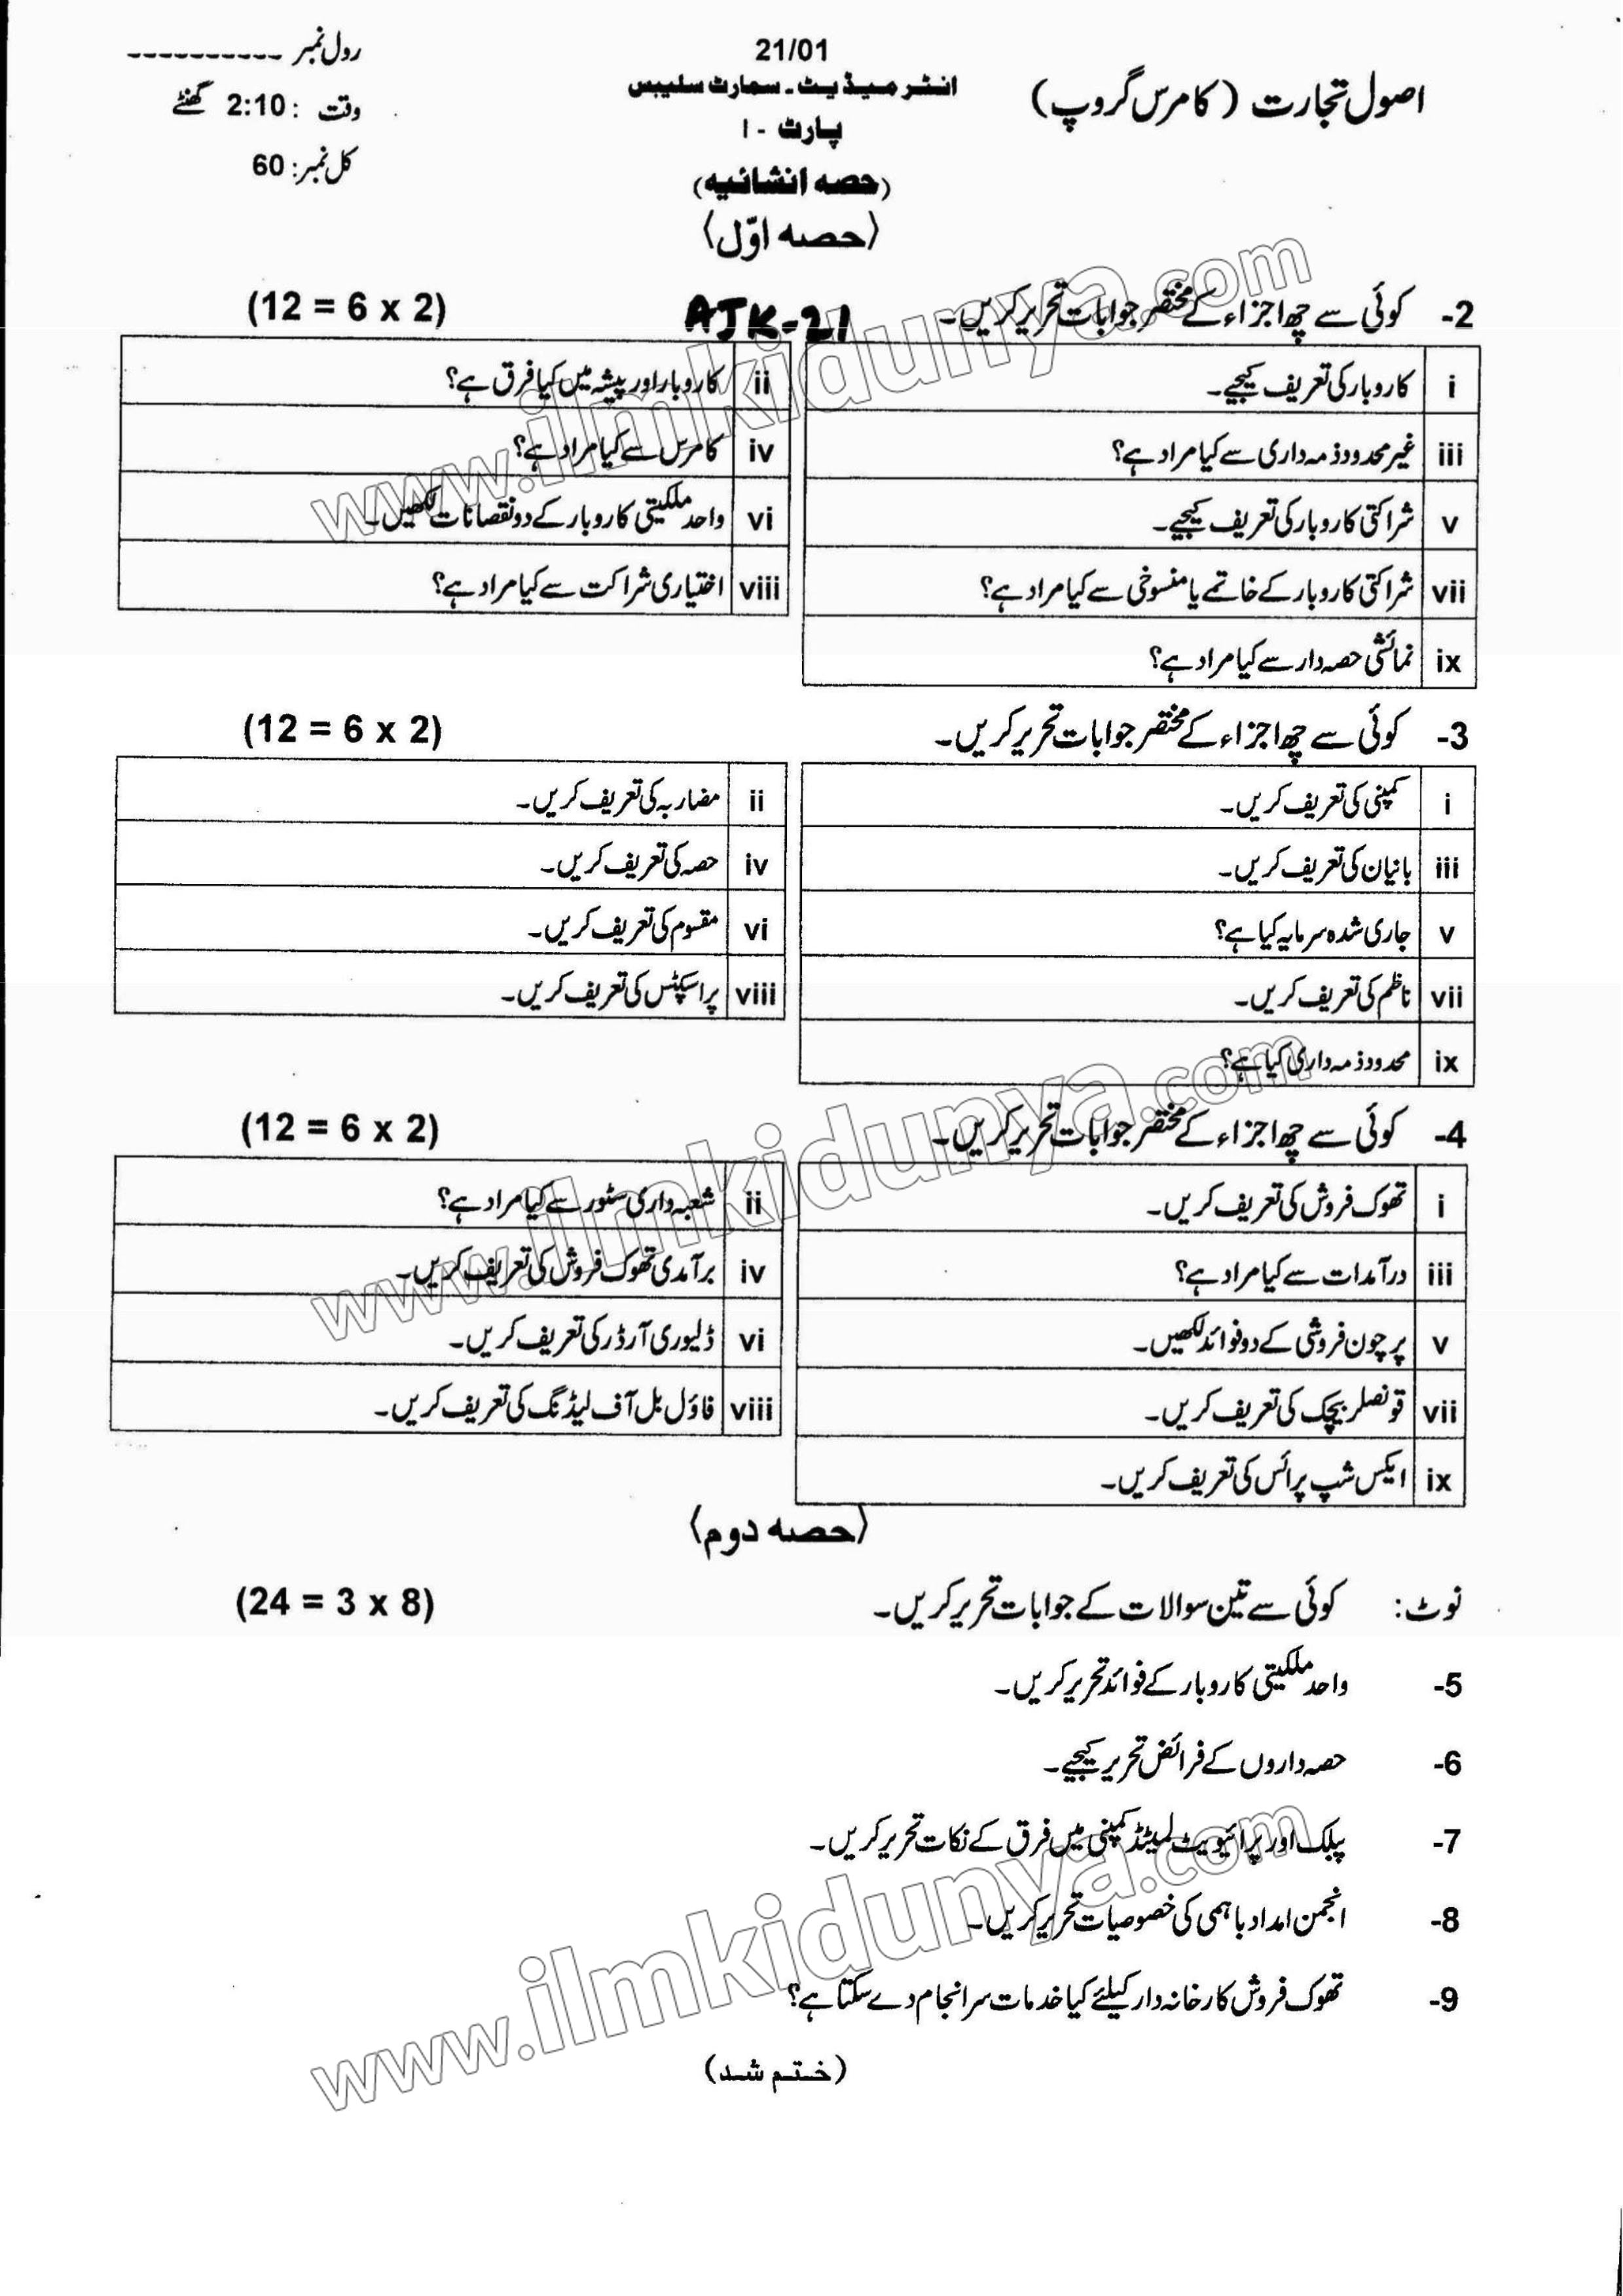 اصول تجارت (کامرس گروپ)
21/01
انٹرمیڈیٹ۔سمارٹ سلیبس
پارٹ - I
(حصہ انشائیہ)
(حصہ اوّل)
رول نمبر ----------
وقت : 2:10 گھنٹے
کل نمبر: 60
AJK-21
2- کوئی سے چھ اجزاء کے مختصر جوابات تحریر کریں۔ (12 = 6 x 2)
i کاروبار کی تعریف کیجیے۔
ii کاروبار اور پیشہ میں کیا فرق ہے؟
iii غیر محدود ذمہ داری سے کیا مراد ہے؟
iv کامرس سے کیا مراد ہے؟
v شراکتی کاروبار کی تعریف کیجیے۔
vi واحد ملکیتی کاروبار کے دو نقصانات لکھیں۔
vii شراکتی کاروبار کے خاتمے یا منسوخی سے کیا مراد ہے؟
viii اختیاری شراکت سے کیا مراد ہے؟
ix نمائشی حصہ دار سے کیا مراد ہے؟
3- کوئی سے چھ اجزاء کے مختصر جوابات تحریر کریں۔ (12 = 6 x 2)
i کمپنی کی تعریف کریں۔
ii مضاربہ کی تعریف کریں۔
iii بانیان کی تعریف کریں۔
iv حصہ کی تعریف کریں۔
v جاری شدہ سرمایہ کیا ہے؟
vi مقسوم کی تعریف کریں۔
vii ناظم کی تعریف کریں۔
viii پراسپکٹس کی تعریف کریں۔
ix محدود ذمہ داری کیا ہے؟
4- کوئی سے چھ اجزاء کے مختصر جوابات تحریر کریں۔ (12 = 6 x 2)
i تھوک فروش کی تعریف کریں۔
ii شعبہ واری سٹور سے کیا مراد ہے؟
iii درآمدات سے کیا مراد ہے؟
iv برآمدی تھوک فروش کی تعریف کریں۔
v پرچون فروشی کے دو فوائد لکھیں۔
vi ڈلیوری آرڈر کی تعریف کریں۔
vii قونصلر بیجک کی تعریف کریں۔
viii فاؤل بل آف لیڈنگ کی تعریف کریں۔
ix ایکس شپ پرائس کی تعریف کریں۔
(حصہ دوم)
نوٹ: کوئی سے تین سوالات کے جوابات تحریر کریں۔ (24 = 3 x 8)
5- واحد ملکیتی کاروبار کے فوائد تحریر کریں۔
6- حصہ داروں کے فرائض تحریر کیجیے۔
7- پبلک اور پرائیویٹ لمیٹڈ کمپنی میں فرق کے نکات تحریر کریں۔
8- انجمن امداد باہمی کی خصوصیات تحریر کریں۔
9- تھوک فروش کارخانہ دار کیلئے کیا خدمات سرانجام دے سکتا ہے؟
(ختم شد)
www.ilmkidunya.com
www.ilmkidunya.com
www.ilmkidunya.com